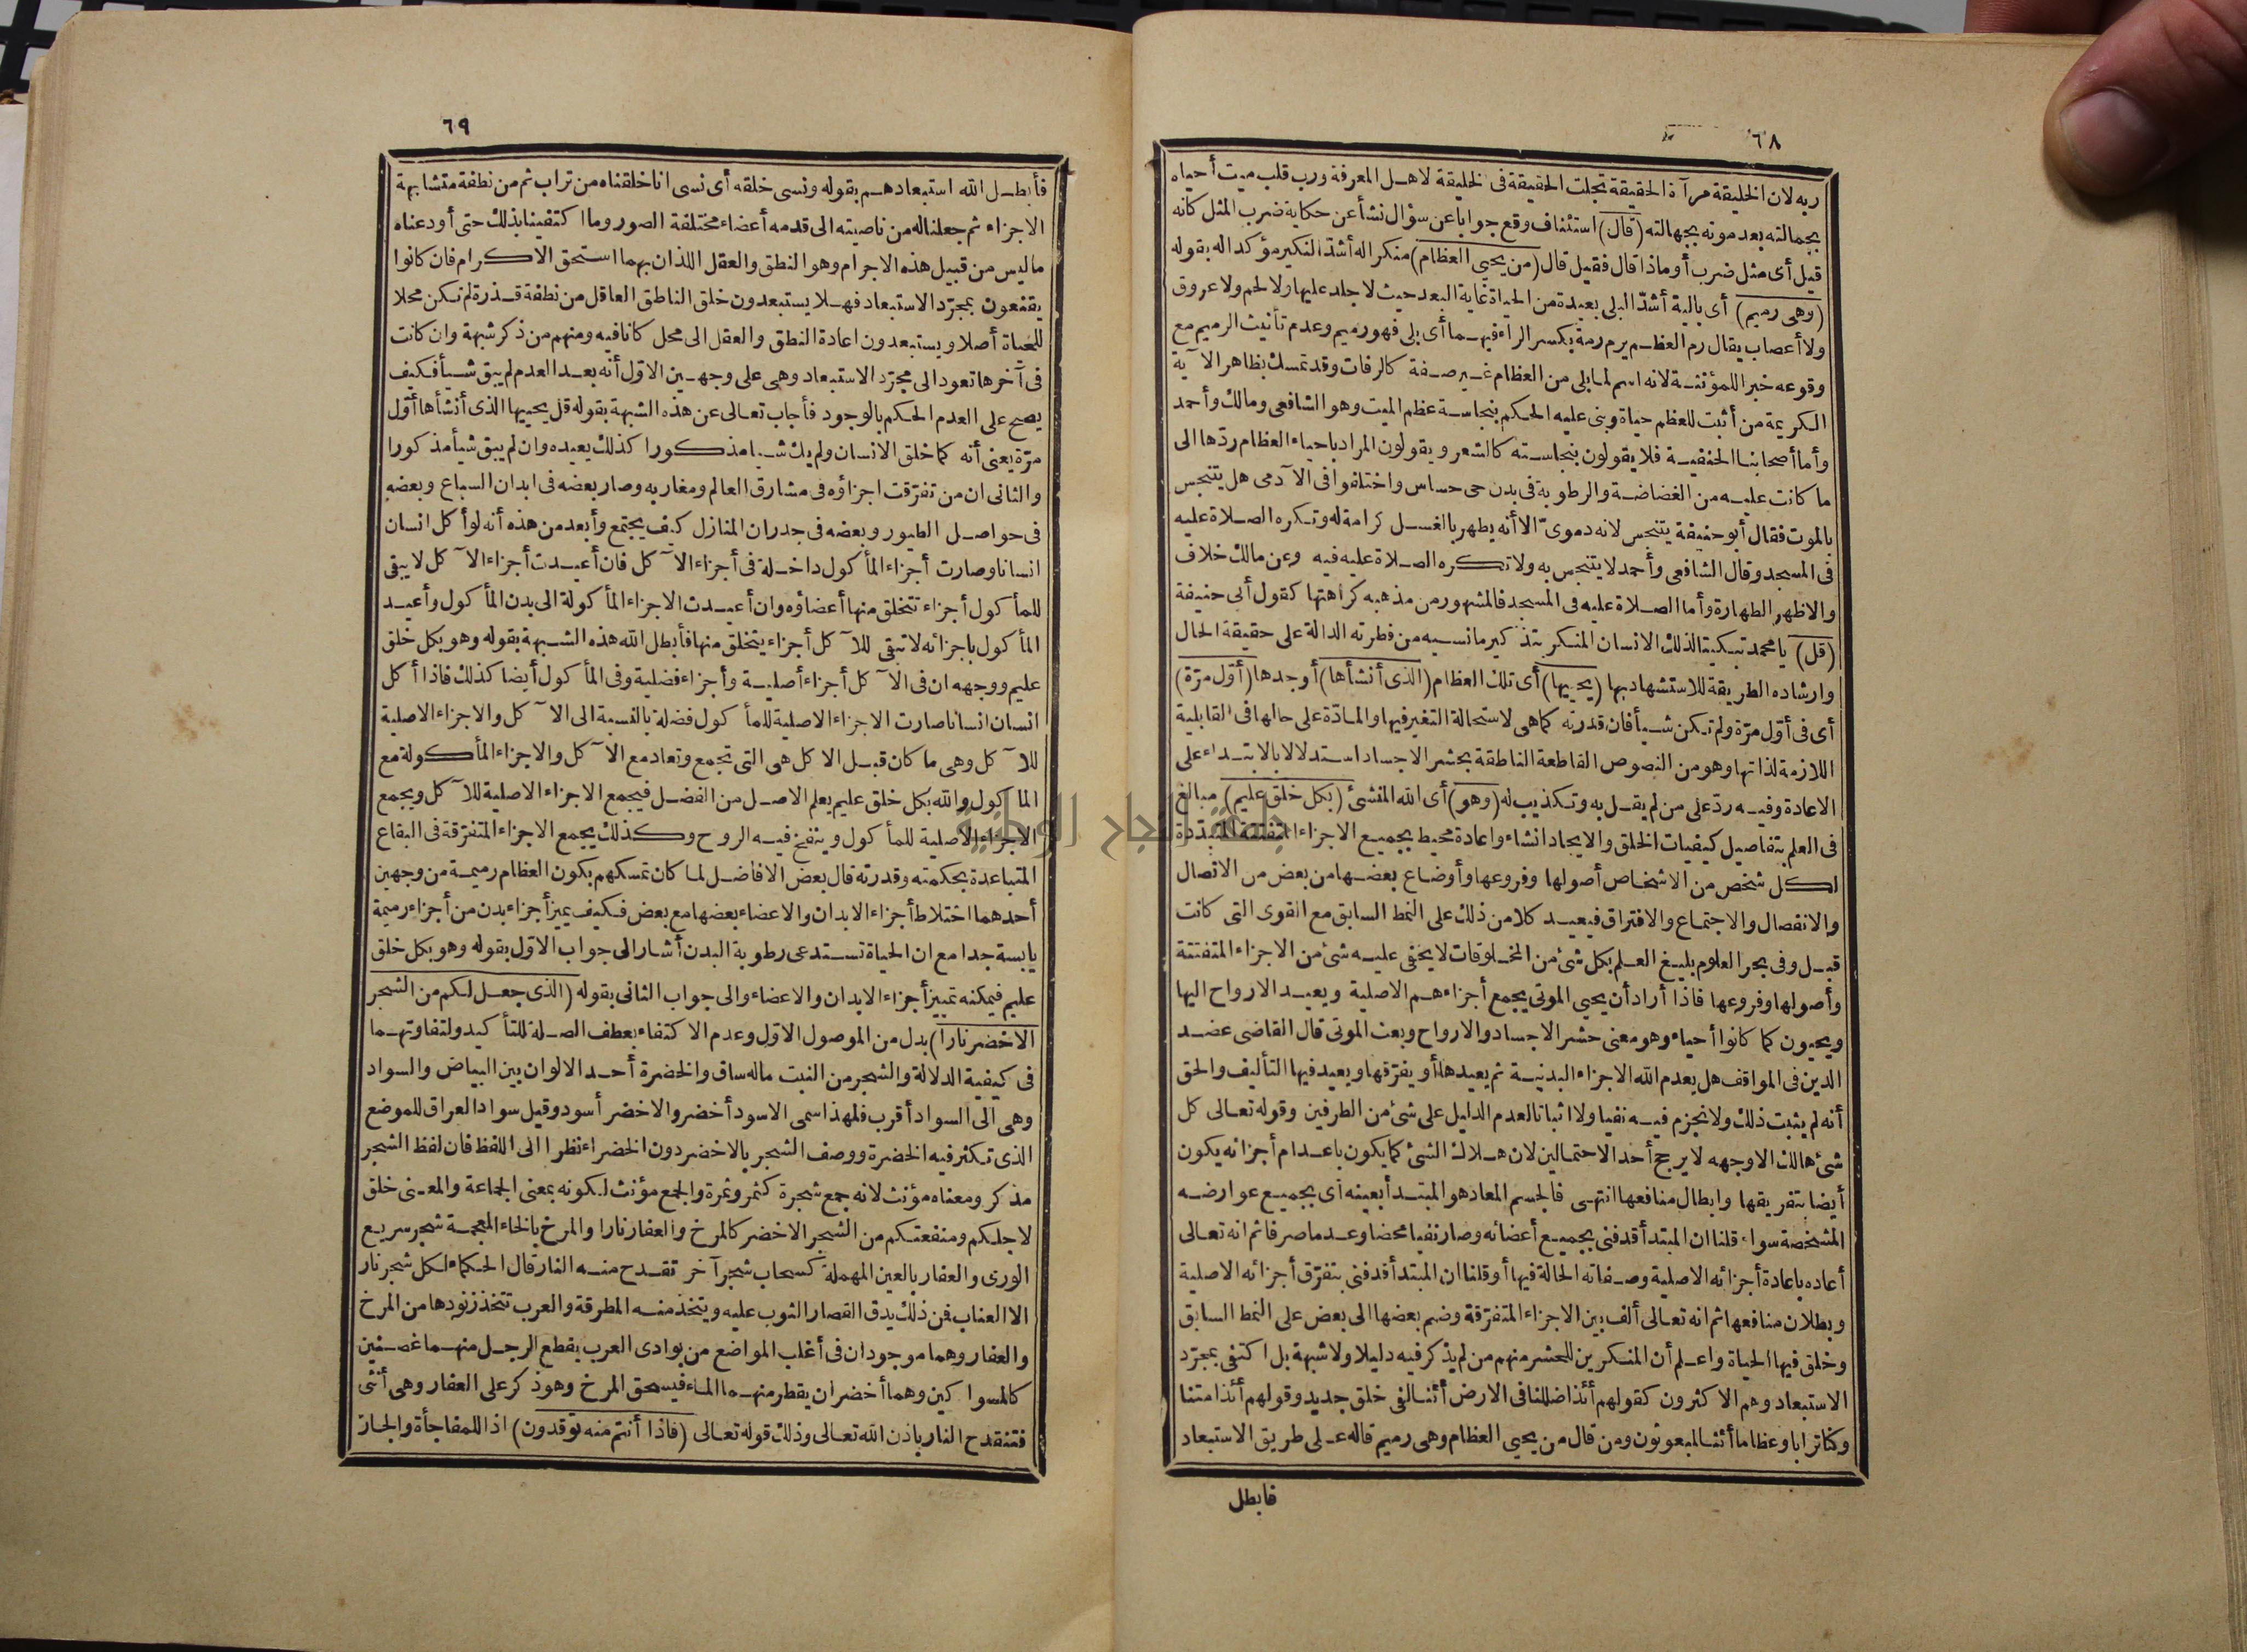 ٦٨
ربه لان الخليقة مرآة الحقيقة تجلت الحقيقة فى الخليقة لاهل المعرفة ورب قلب ميت أحياه
بجمالته بعد موته بجهالته (قال) استئناف وقع جوابا عن سؤال نشأ عن حكاية ضرب المثل كانه
قيل أى مثل ضرب أو ماذا قال فقيل قال (من يحيى العظام) منكرا له أشدّ النكير مؤكدا له بقوله
(وهى رميم) أى بالية أشدّ البلى بعيدة من الحياة غاية البعد حيث لا جلد عليها ولا لحم ولا عروق
ولا أعصاب يقال رم العظم يرم رمة بكسر الراء فيهما أى بلى فهو رميم وعدم تأنيث الرميم مع
وقوعه خبرا للمؤنثة لانه اسم لما بلى من العظام غير صفة كالرفات وقد تمسك بظاهر الآية
الكريمة من أثبت للعظم حياة وبنى عليه الحكم بنجاسة عظم الميت وهو الشافعى ومالك وأحمد
وأما أصحابنا الحنفية فلا يقولون بنجاسته كالشعر ويقولون المراد باحياء العظام ردّها الى
ما كانت عليه من الغضاضة والرطوبة فى بدن حى حساس واختلفوا فى الآدمى هل يتنجس
بالموت فقال أبو حنيفة يتنجس لانه دموىّ الا أنه يطهر بالغسل كرامة له وتكره الصلاة عليه
فى المسجد وقال الشافعى وأحمد لا يتنجس به ولا تكره الصلاة عليه فيه وعن مالك خلاف
والاظهر الطهارة وأما الصلاة عليه فى المسجد فالمشهور من مذهبه كراهتها كقول أبى حنيفة
(قل) يا محمد تبكيتا لذلك الانسان المنكر بتذكير ما نسيه من فطرته الدالة على حقيقة الحال
وارشاده الطريقة للاستشهاد بها (يحييها) أى تلك العظام (الذى أنشأها) أوجدها (أوّل مرّة)
أى فى أوّل مرّة ولم تكن شيأ فان قدرته كما هى لاستحالة التغير فيها والمادّة على حالها فى القابلية
اللازمة لذاتها وهو من النصوص القاطعة الناطقة بحشر الاجساد استدلالا بالابتداء على
الاعادة وفيه ردّ على من لم يقل به وتكذيب له (وهو) أى الله المنشئ (بكل خلق عليم) مبالغ
فى العلم بتفاصيل كيفيات الخلق والايجاد انشاء واعادة محيط بجميع الاجزاء المتفتتة المتبددة
لكل شخص من الاشخاص أصولها وفروعها وأوضاع بعضها من بعض من الاتصال
والانفصال والاجتماع والافتراق فيعيد كلا من ذلك على النمط السابق مع القوى التى كانت
قبل وفى بحر العلوم بليغ العلم بكل شئ من المخلوقات لا يخفى عليه شئ من الاجزاء المتفتتة
وأصولها وفروعها فاذا أراد أن يحيى الموتى يجمع أجزاءهم الاصلية ويعيد الارواح اليها
ويحيون كما كانوا أحياء وهو معنى حشر الاجساد والارواح وبعث الموتى قال القاضى عضد
الدين فى المواقف هل يعدم الله الاجزاء البدنية ثم يعيدها أو يفرّقها ويعيد فيها التأليف والحق
أنه لم يثبت ذلك ولا نجزم فيه نفيا ولا اثباتا لعدم الدليل على شئ من الطرفين وقوله تعالى كل
شئ هالك الا وجهه لا يرجح أحد الاحتمالين لان هلاك الشئ كما يكون باعدام أجزائه يكون
أيضا بتفريقها وابطال منافعها انتهى فالجسم المعاد هو المبتدأ بعينه أى بجميع عوارضه
المشخصة سواء قلنا ان المبتدأ قد فنى بجميع أعضائه وصار نفيا محضا وعدما صرفا ثم انه تعالى
أعاده باعادة أجزائه الاصلية وصفاته الحالة فيها أو قلنا ان المبتدأ قد فنى بتفرّق أجزائه الاصلية
وبطلان منافعها ثم انه تعالى ألف بين الاجزاء المتفرّقة وضم بعضها الى بعض على النمط السابق
وخلق فيها الحياة واعلم أن المنكرين للحشر منهم من لم يذكر فيه دليلا ولا شبهة بل اكتفى بمجرّد
الاستبعاد وهم الاكثرون كقولهم أئذا ضللنا فى الارض أئنا لفى خلق جديد وقولهم أئذا متنا
وكنا ترابا وعظاما أئنا لمبعوثون ومن قال من يحيى العظام وهى رميم قاله على طريق الاستبعاد
فابطل
٦٩
فأبطل الله استبعادهم بقوله ونسى خلقه أى نسى انا خلقناه من تراب ثم من نطفة متشابهة
الاجزاء ثم جعلنا له من ناصيته الى قدمه أعضاء مختلفة الصور وما اكتفينا بذلك حتى أودعناه
ما ليس من قبيل هذه الاجرام وهو النطق والعقل اللذان بهما استحق الاكرام فان كانوا
يقنعون بمجرّد الاستبعاد فهلا يستبعدون خلق الناطق العاقل من نطفة قذرة لم تكن محلا
للحياة أصلا ويستبعدون اعادة النطق والعقل الى محل كانا فيه ومنهم من ذكر شبهة وان كانت
فى آخرها تعود الى مجرّد الاستبعاد وهى على وجهين الاوّل أنه بعد العدم لم يبق شيأ فكيف
يصح على العدم الحكم بالوجود فأجاب تعالى عن هذه الشبهة بقوله قل يحييها الذى أنشأها أوّل
مرّة يعنى أنه كما خلق الانسان ولم يك شيأ مذكورا كذلك يعيده وان لم يبق شيأ مذكورا
والثانى ان من تفرّقت اجزاؤه فى مشارق العالم ومغاربه وصار بعضه فى ابدان السباع وبعضه
فى حواصل الطيور وبعضه فى جدران المنازل كيف يجتمع وأبعد من هذه أنه لو أكل انسان
انسانا وصارت أجزاء المأكول داخلة فى أجزاء الآكل فان أعيدت أجزاء الآكل لا يبقى
للمأكول أجزاء تتخلق منها أعضاؤه وان أعيدت الاجزاء المأكولة الى بدن المأكول وأعيد
المأكول باجزائه لا تبقى للآكل أجزاء يتخلق منها فأبطل الله هذه الشبهة بقوله وهو بكل خلق
عليم ووجهه ان فى الآكل أجزاء أصلية وأجزاء فضلية وفى المأكول أيضا كذلك فاذا أكل
انسان انسانا صارت الاجزاء الاصلية للمأكول فضلة بالنسبة الى الآكل والاجزاء الاصلية
للآكل وهى ما كان قبل الاكل هى التى تجمع وتعاد مع الآكل والاجزاء المأكولة مع
المأكول والله بكل خلق عليم يعلم الاصل من الفضل فيجمع الاجزاء الاصلية للآكل ويجمع
الاجزاء الاصلية للمأكول وينفخ فيه الروح وكذلك يجمع الاجزاء المتفرّقة فى البقاع
المتباعدة بحكمته وقدرته قال بعض الافاضل لما كان تمسكهم بكون العظام رميمة من وجهين
أحدهما اختلاط أجزاء الابدان والاعضاء بعضها مع بعض فكيف يميز أجزاء بدن من أجزاء رميمة
يابسة جدا مع ان الحياة تستدعى رطوبة البدن أشار الى جواب الاوّل بقوله وهو بكل خلق
عليم فيمكنه تمييز أجزاء الابدان والاعضاء والى جواب الثانى بقوله (الذى جعل لكم من الشجر
الاخضر نارا) بدل من الموصول الاوّل وعدم الاكتفاء بعطف الصلة للتأكيد ولتفاوتهما
فى كيفية الدلالة والشجر من النبت ماله ساق والخضرة أحد الالوان بين البياض والسواد
وهى الى السواد أقرب فلهذا سمى الاسود أخضر والاخضر أسود وقيل سواد العراق للموضع
الذى تكثر فيه الخضرة ووصف الشجر بالاخضر دون الخضراء نظرا الى اللفظ فان لفظ الشجر
مذكر ومعناه مؤنث لانه جمع شجرة كثمر وثمرة والجمع مؤنث لكونه بمعنى الجماعة والمعنى خلق
لاجلكم ومنفعتكم من الشجر الاخضر كالمرخ والعفار نارا والمرخ بالخاء المعجمة شجر سريع
الورى والعفار بالعين المهملة كسحاب شجر آخر تقدح منه النار قال الحكماء لكل شجر نار
الا العناب فمن ذلك يدق القصار الثوب عليه ويتخذ منه المطرقة والعرب تتخذ زنودها من المرخ
والعفار وهما موجودان فى أغلب المواضع من بوادى العرب يقطع الرجل منهما غصنين
كالمسواكين وهما أخضران يقطر منهما الماء فيسحق المرخ وهو ذكر على العفار وهى أنثى
فتنقدح النار باذن الله تعالى وذلك قوله تعالى (فاذا أنتم منه توقدون) اذا للمفاجأة والجار
جامعة النجاح الوطنية